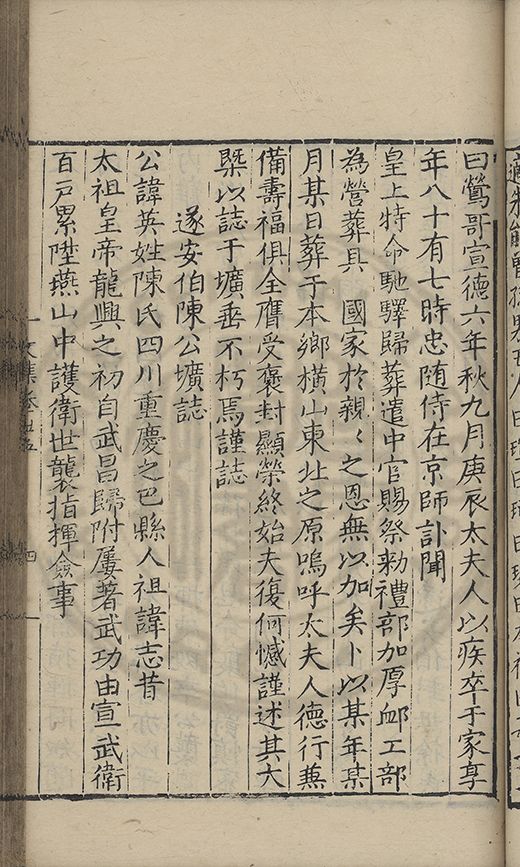 曰鶯哥宣德六年秋九月庚辰太夫人以疾卒于家享
年八十有七時忠随侍在京師訃聞
皇上特命馳驛歸葬遣中官賜祭勑禮部加厚䘏工部
為營葬具　國家於親〻之恩無以加矣卜以某年某
月某日葬于本鄉橫山東北之原嗚呼太夫人德行兼
備壽福俱全膺受褒封顯榮終始夫復何憾謹述其大
槩以誌于壙垂不朽焉謹誌
遂安伯陳公壙誌
公諱英姓陳氏四川重慶之巴縣人祖諱志昔
太祖皇帝龍興之初自武昌歸附屢著武功由宣武衛
百戸累陞燕山中護衛世襲指揮僉事
文集卷
四